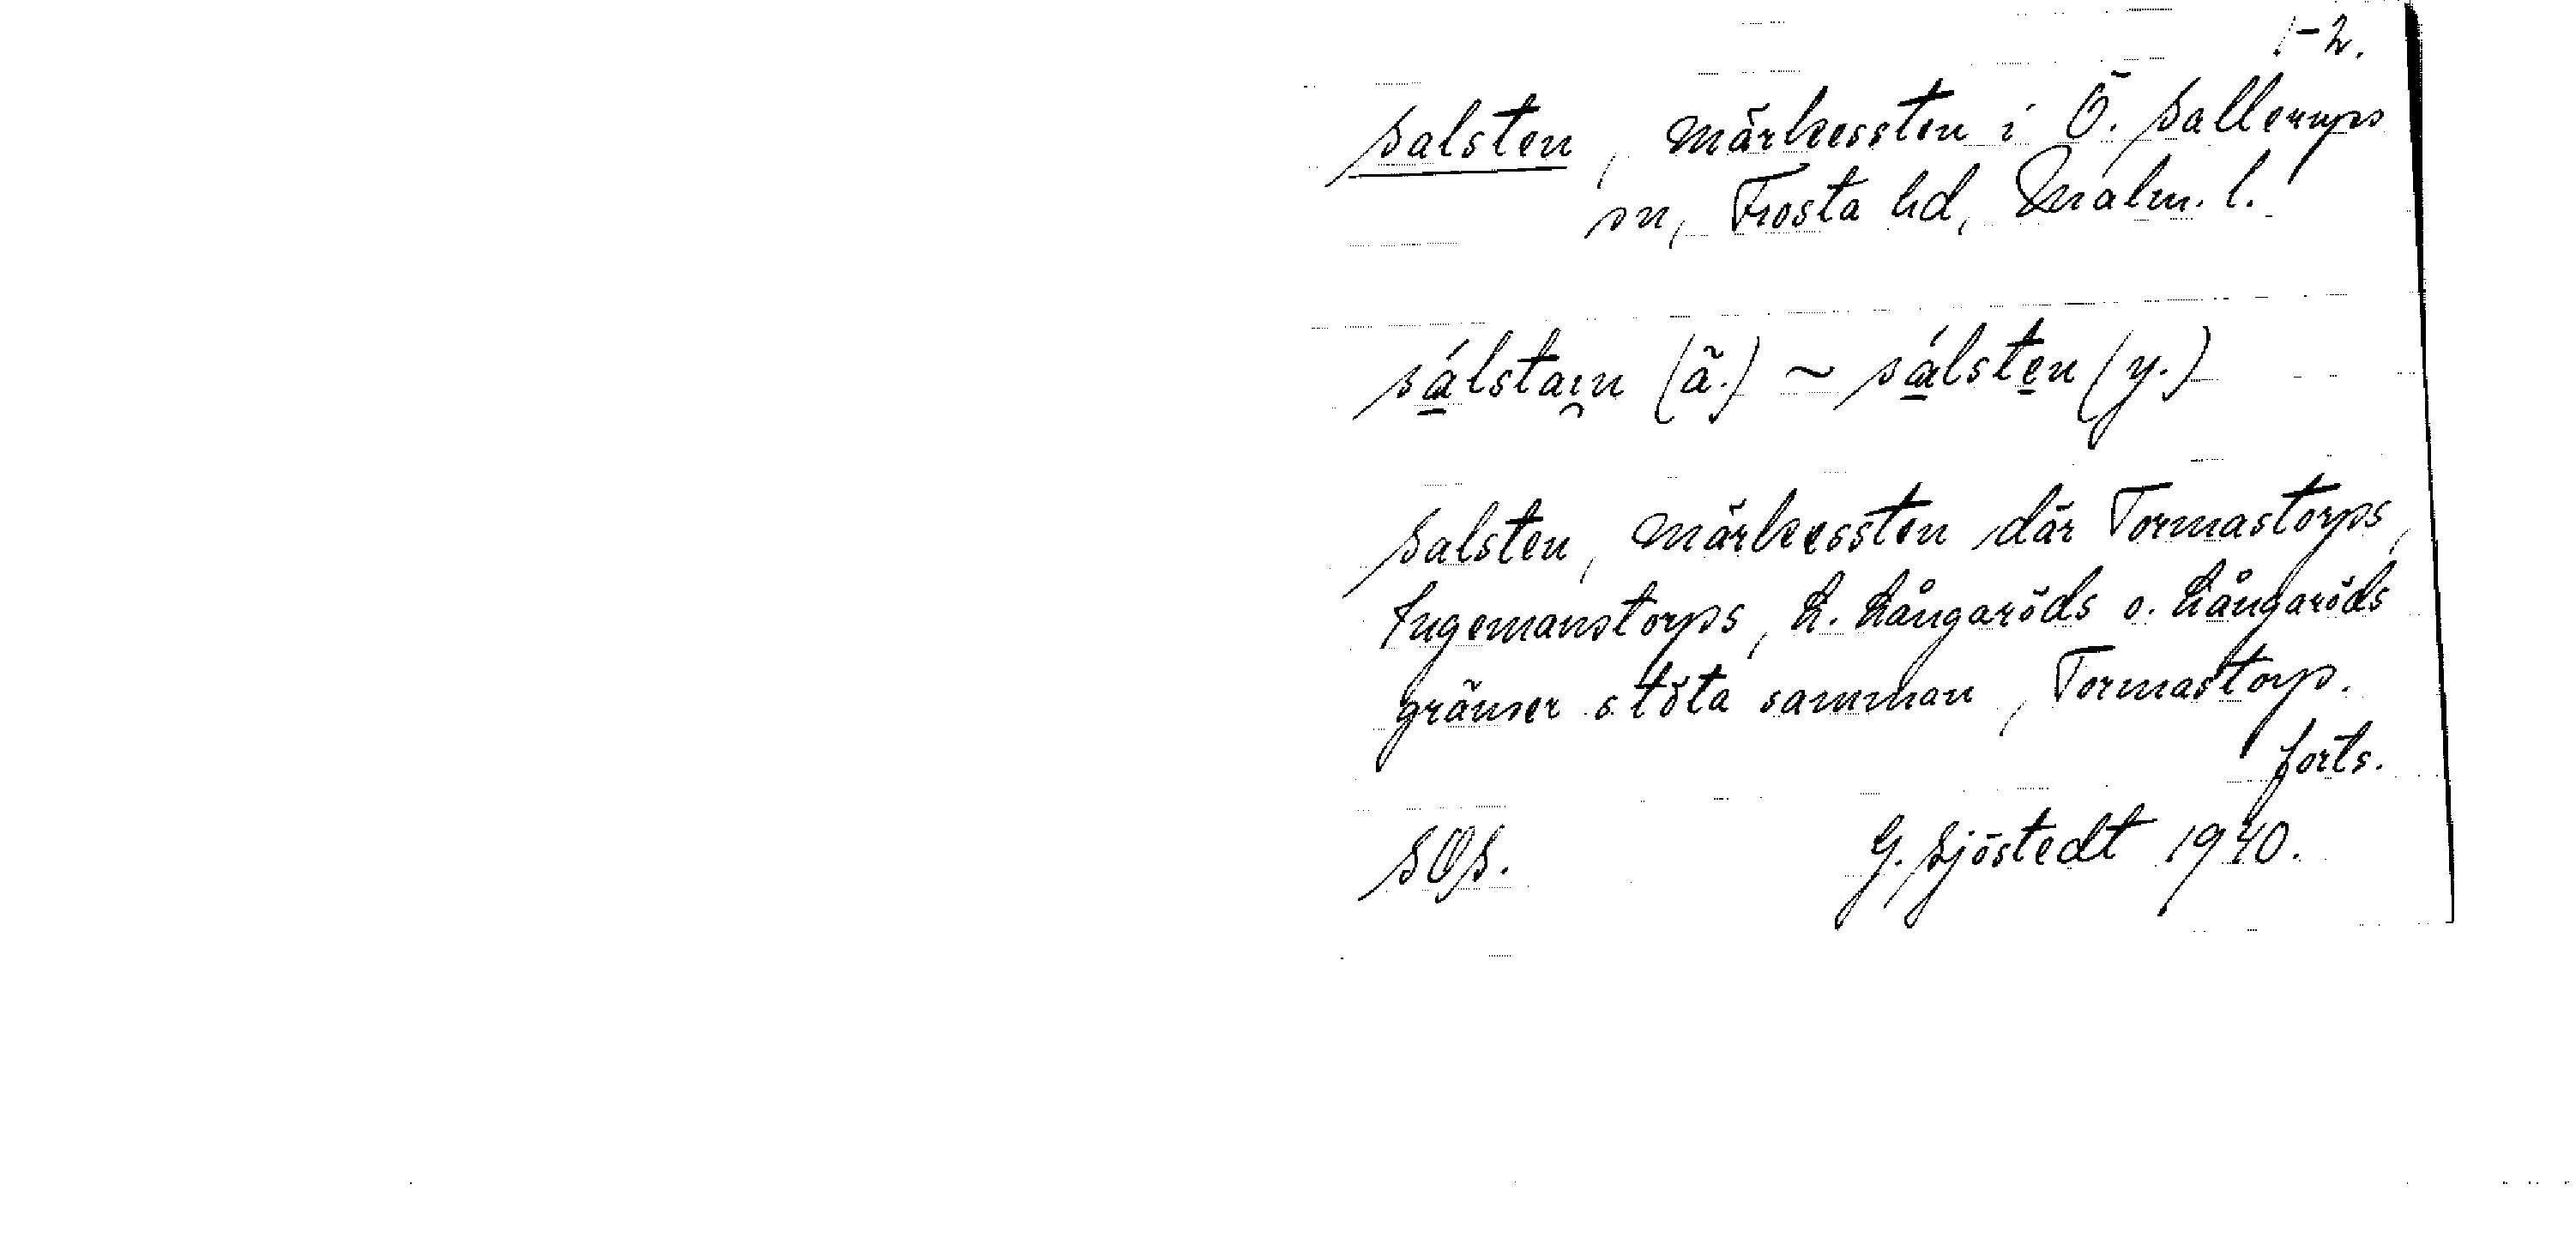 1-2.
Salsten, märkessten i Ö. Sallerups
sn, Frosta hd, Malm. l.
sálstaı̯n (ä.) ~ sálsten (y.)
Salsten, märkessten där Tormastorps,
Ingemanstorps, L. Långaröds o. Långaröds
gränser stöta samman, Tormastorp.
forts.
SOS. G. Sjöstedt 1940.